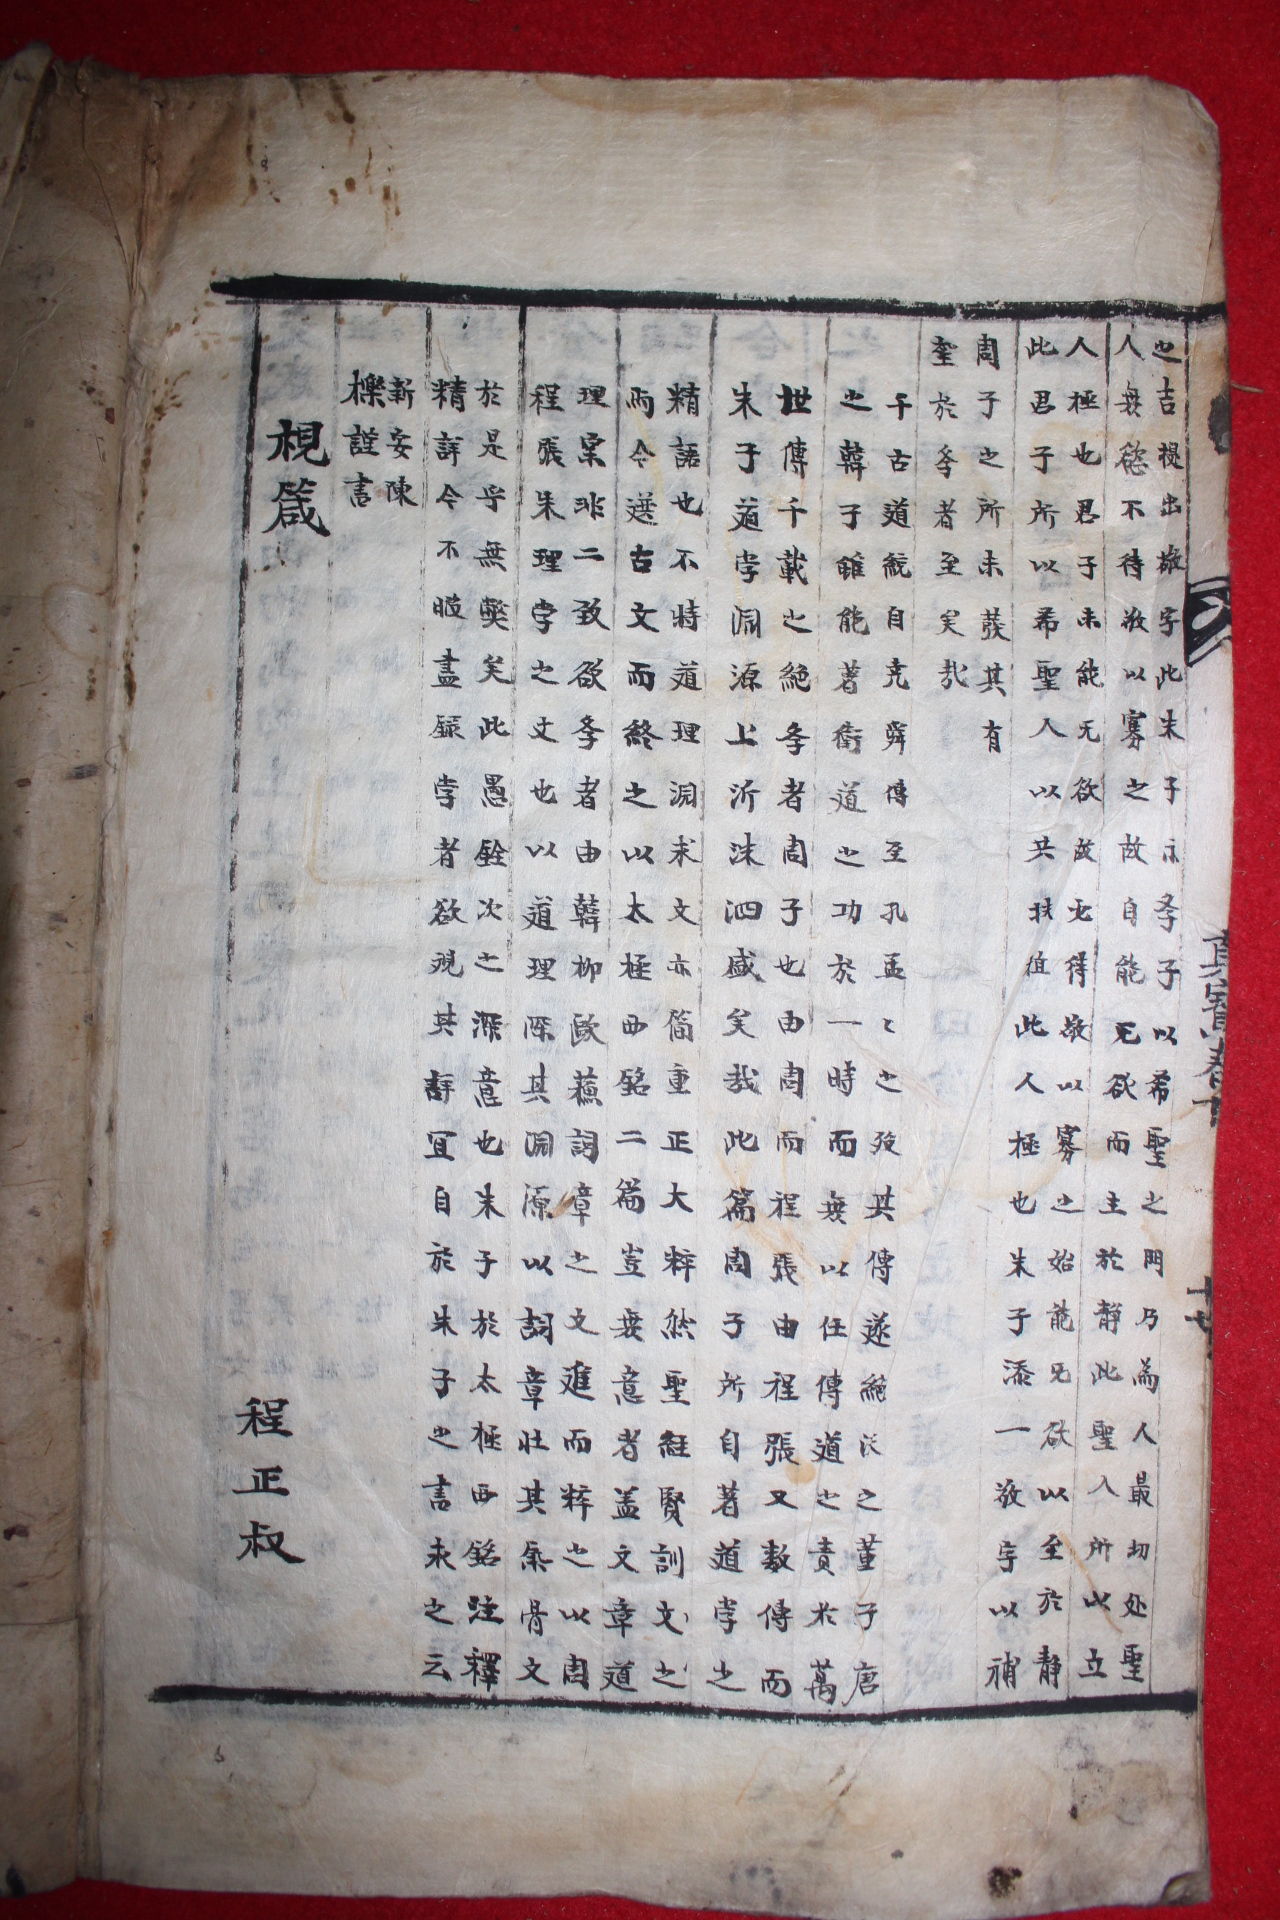 也吉提出敬字此朱子示斈子以希聖之門乃為人最切处聖
人無慾不待敬以寡之故自能无欲而主於静此聖人所以立
人極也君子未能无欲故尤得敬以寡之始能无欲以至於静
此君子所以希聖人以共扶植此人極也朱子添一敬字以補
周子之所未發其有
奎於斈者至矣哉
千古道統自尭舜傳至孔孟〻之殁其傳遂絶漢之董子唐
之韓子雖能著衛道之功於一時而無以任傳道之責於萬
世傳千載之絶斈者周子也由周而程張由程張又数傳而
朱子道学渊源上沂洙泗盛矣哉此篇周子所自著道学之
精語也不特道理渊永文亦簡重正大粹然聖經賢訓文之
而今選古文而終之以太極西銘二篇豈無意者盖文章道
理宲非二致欲斈者由韓柳歐蘇詞章之文進而粹之以周
程張朱理学之文也以道理深其渊源以詞章壮其氣骨文
於是乎無獘矣此愚銓次之深意也朱子於太極西銘註釋
精詳今不暇盡録学者欲观其詳冝自於朱子之書求之云
新安陳
櫟謹書
視箴 程正叔
真寳卷十